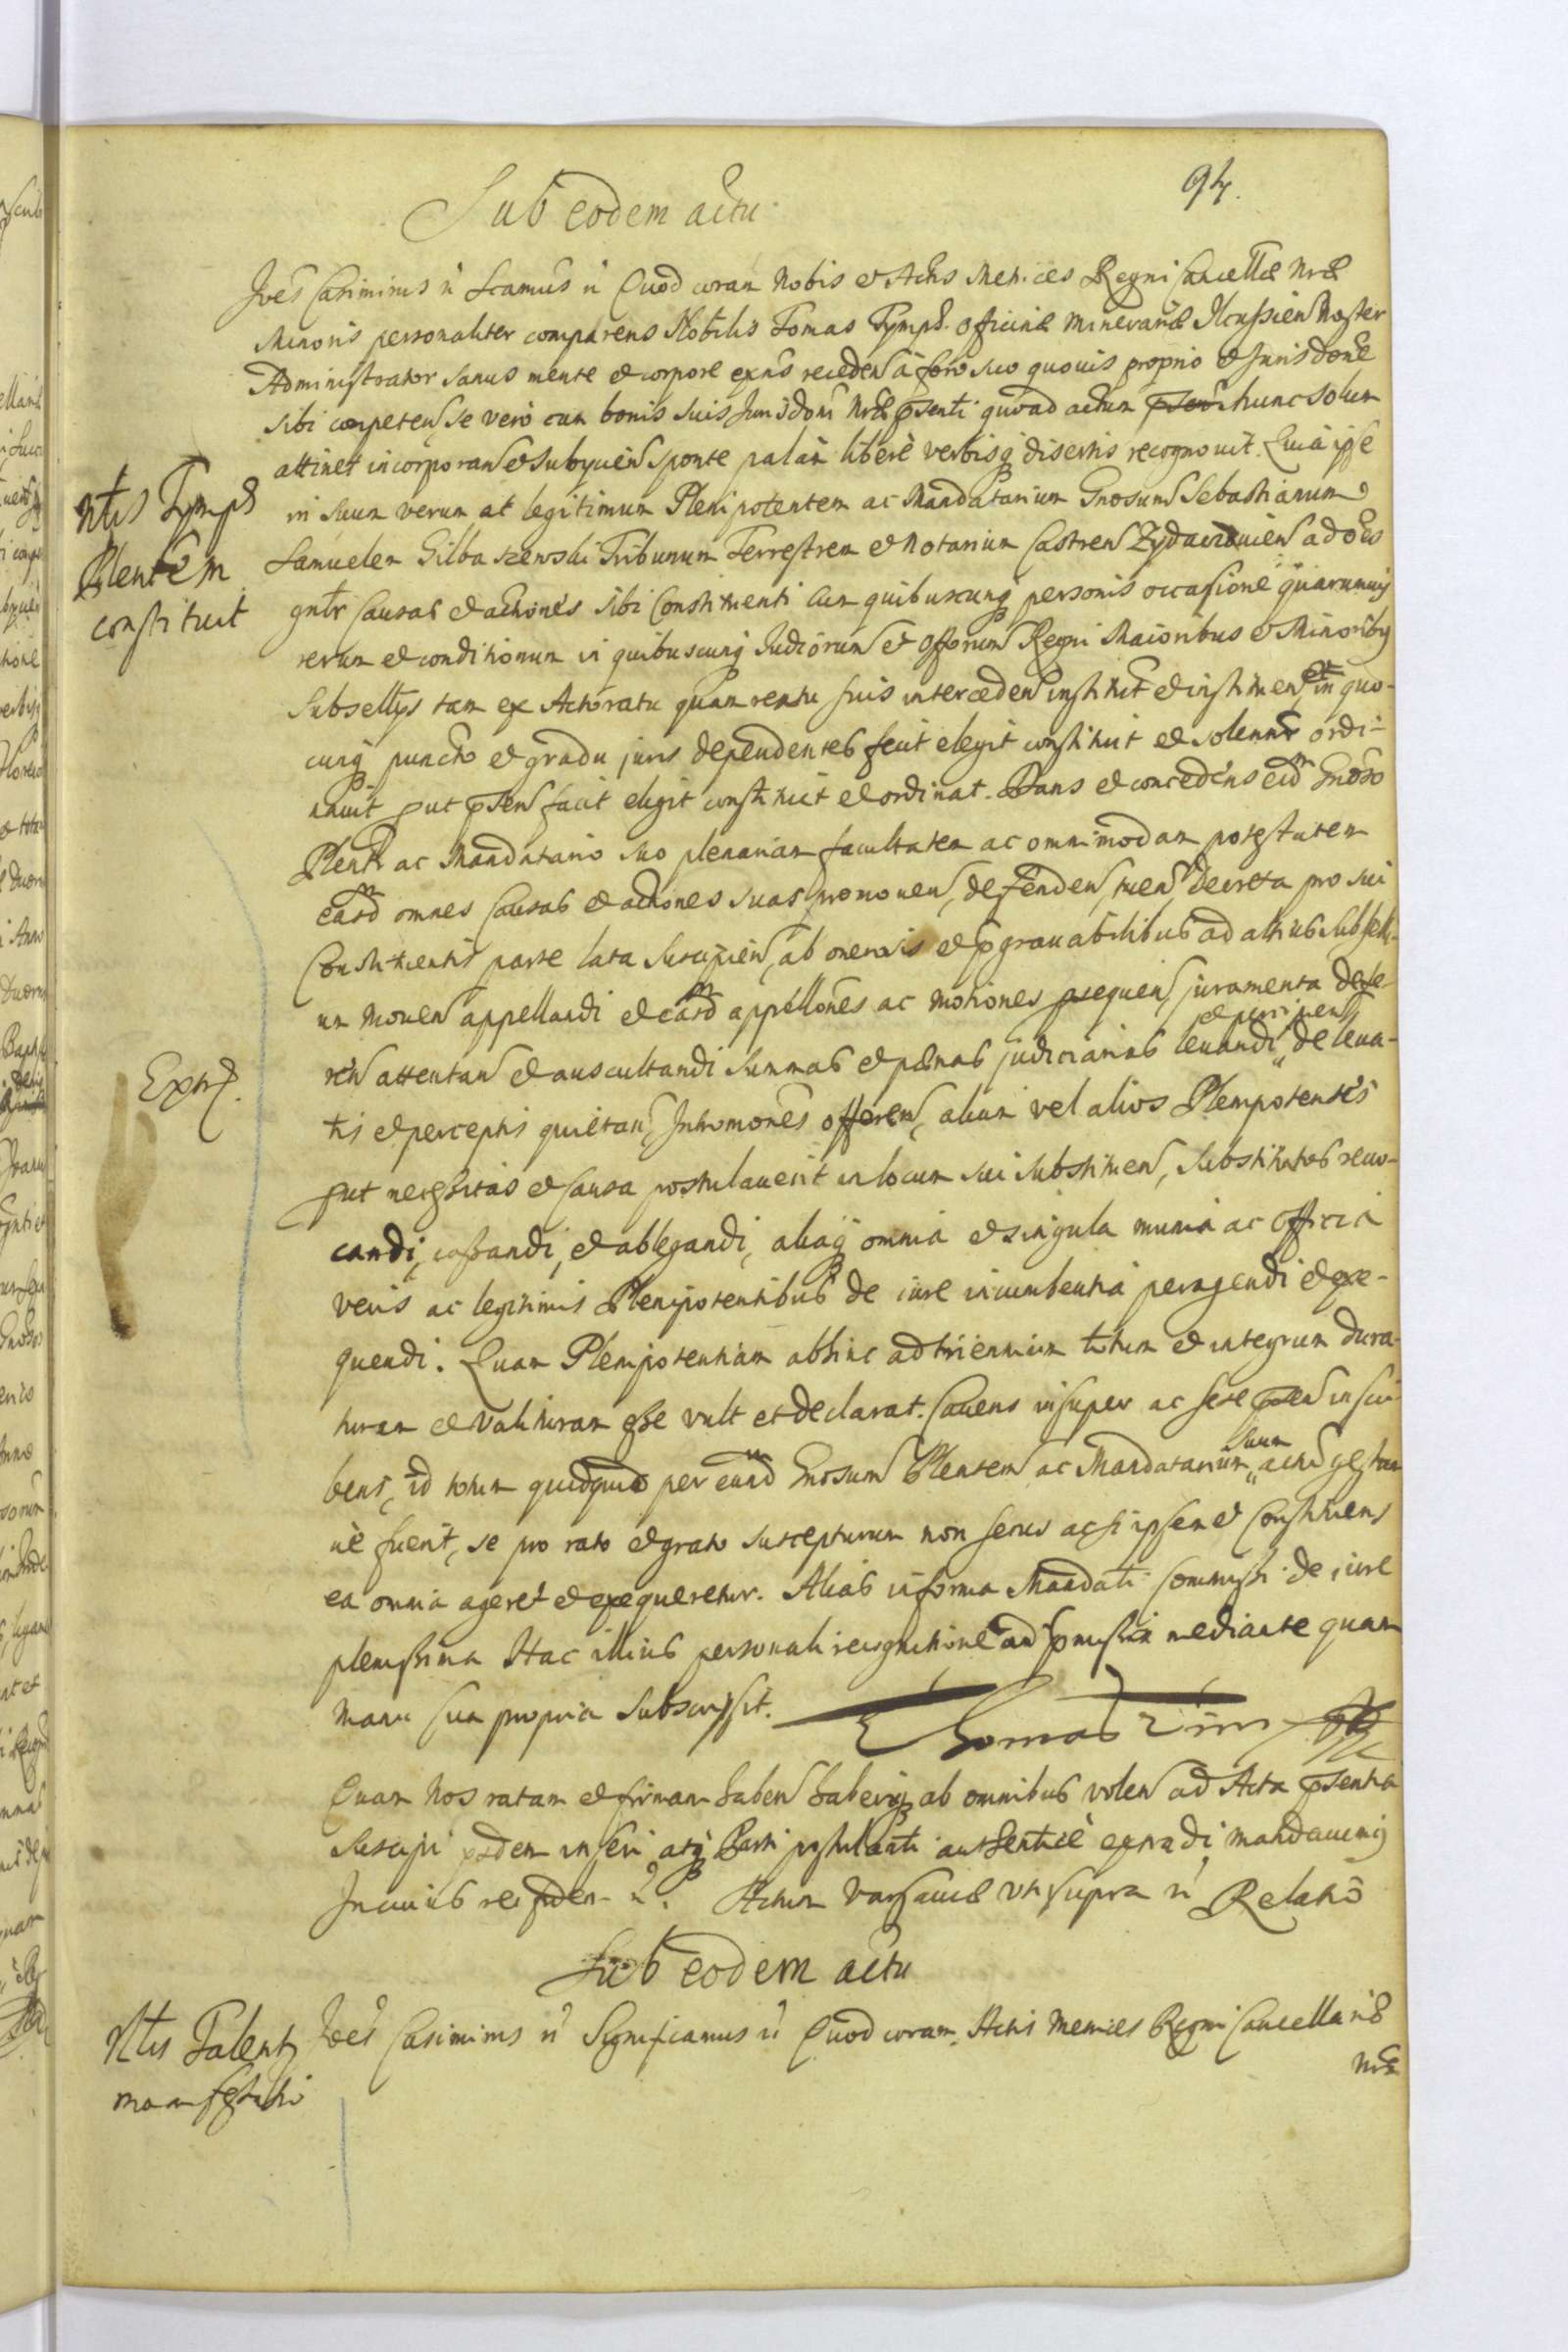 94.
Sub eodem actu
Joês Casimirus ñ Scamus ñ Quod coram Nobis et Actis Metrices Regni Cancellæ Nræ
Minoris personaliter comparens Nobilis Tomas Tymph. Officinæ Minerariæ Ilcussien Noster
Administrator sanus mente et corpore exñs receden à foro suo quovis proprio et Jurisdone
sibi competen, se verò cum bonis suis Jurisdoni Nræ psenti quoad actum hunc solum
attinet incorporan et subycien sponte palàm liberè verbisq disertis recognovit. Quia ipse
in suum verum at legitimum Plenipotentem ac Mandatarium Gnosum Sebastianum
Samuelem Gilbaszewski Tribunum Terrestrem et Notarium Castren Zydaczovien ad oês
gntr Causas et actiones sibi Constituenti cum quibuscunq personis occasione quarumvis
rerum et conditionum in quibuscunq Judiciorum et Offorum Regni Maioribus et Minoribus
Subsellys tam ex Actoratu quam reatu suis interceden institut et instituen et in quo-
cunq puncto et gradu juris dependentes fecit elegit constituit et solennr ordi-
navit put psen facit elegit constituit et ordinat. Dans et concedens eidm Gnoso
Plenti ac Mandatario suo plenariam facultatem ac omnimodam potestatem
easdm omnes Causas et actiones suas promoven, defenden, tuen, Decreta pro sui
Constituentis parte lata suscipien, ab onerosis et pgravabilibus ad altius Subselli-
um moven appellandi et easdm appellones ac motiones psequen, juramenta defe-
ren attentan et auscultandi summas et pænas judiciarias levandi et percipien, de leva-
tis et perceptis quietan, Intromones offeren, alium vel alios Plenipotentes
put necessitas et Causa postulaverit in locum sui substituen, substitutos revo-
candi, cassandi, et ablegandi, aliaq omnia et singula munia ac officia
veris ac legitimis Plenipotentibus de iure incumbentia peragendi et exe-
quendi. Quam Plenipotentiam abhinc ad triennium totum et integrum dura-
turam et valituram esse vult et declarat. Cavens insuper ac sese psen inscri-
bens, id totum quidquid per eundm Gnosum Plentem ac Mandatarium suum actu gestum
ve fuerit, se pro rato et grato suscepturum non secus ac si ipsemet Constituens
ea omnia ageret et exequeretur. Alias in forma Mandati Commissi de iure
plenissima Hac illius personali recognitione ad pmissa mediante quam
manu sua propria subscripsit. Thomas Tim
Quam Nos ratam et firmam haben haberiq ab omnibus volen ad Acta psentia
suscipi eadem inseri atq Parti postulanti authenticè extradi mandavimus
In cuius rei fidem ñ. Actum Varsaviæ ut supra ñ Relatio
Sub eodem actu
Joês Casimirus ñ Significamus ñ Quod coram Actis Metrices Regni Cancellariæ
Nræ
Ntis Tymph
Plentem
constituit
Extrd.
Ntis Talent
manifestatio